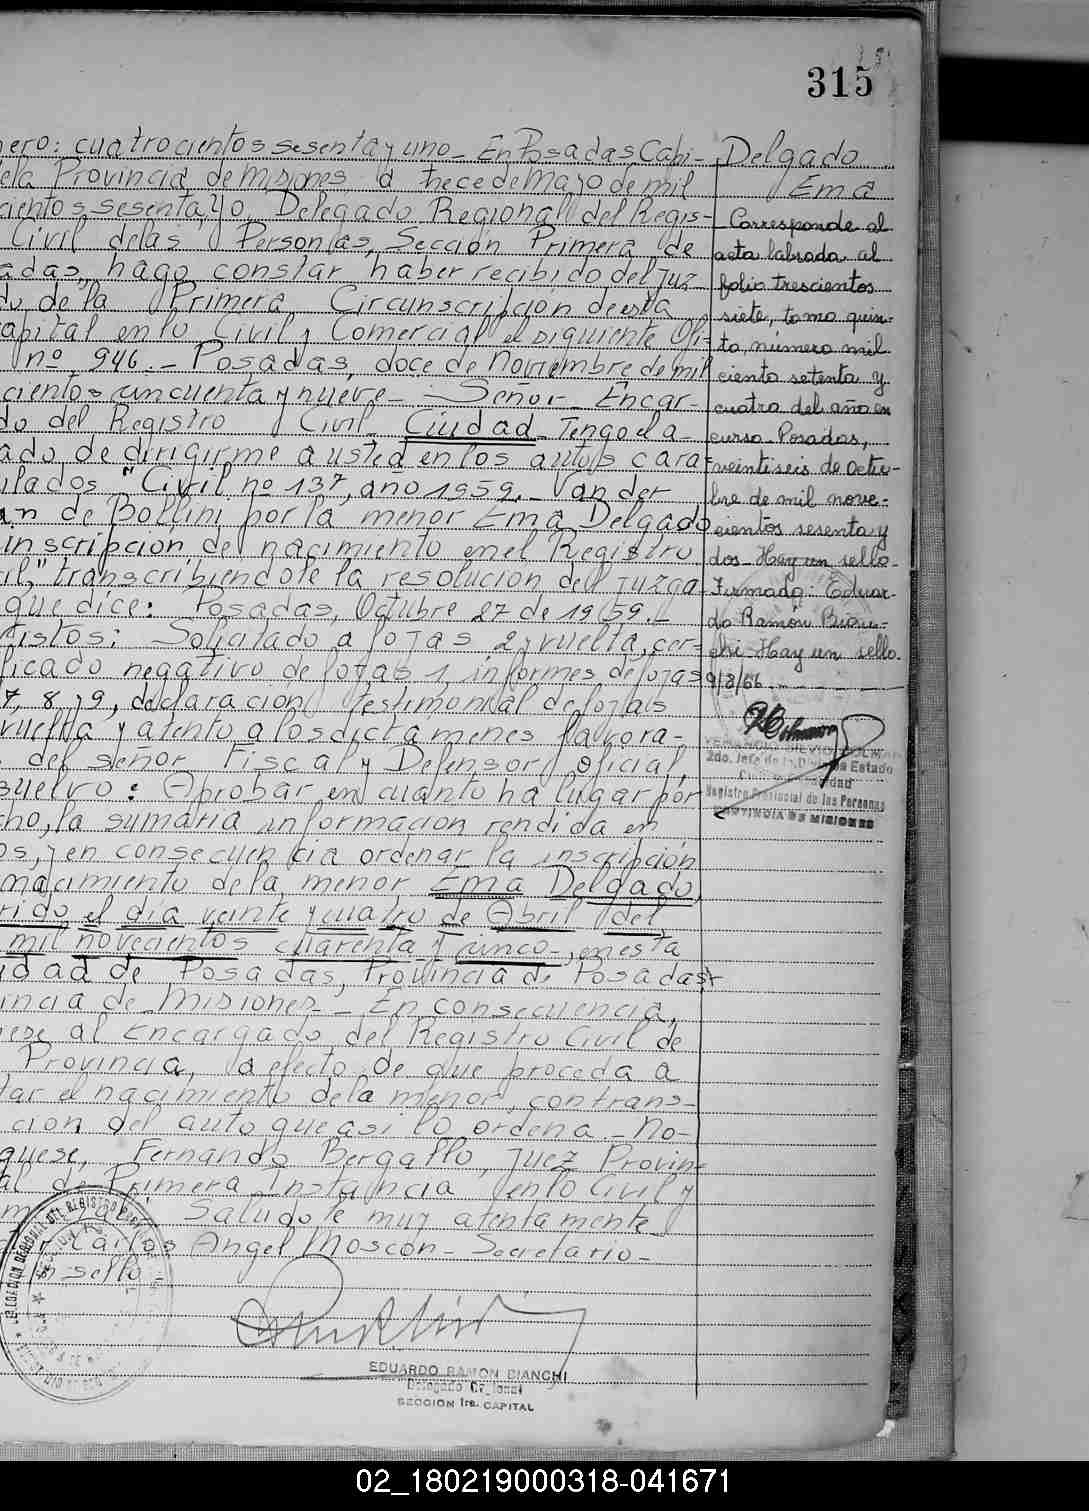 315
nero: cuatrocientos sesenta y uno - En Posadas, Capi-
de la Provincia de misiones a trece de Mayo de mil
cientos sesenta, yo, Delegado Regional del Regis-
Civil de las Personas, Sección Primera de
adas, hago constar haber recibido del Juz-
do de la Primera Circunscripción de esta
apital en lo Civil y Comercial el siguiente Ofi-
nº 946.- Posadas, doce de noviembre de mil
cientos cincuenta y nueve - Señor Encar-
do del Registro Civil - Ciudad - Tengo el a-
ado de dirigirme a usted en los autos cara-
ulados "Civil nº 137, año 1959.- Van der
an de Bollini por la menor Ema Delgado
inscripcion de nacimiento en el Registro
il," transcribiendole la resolucion del Juzga-
que dice: Posadas, Octubre 27 de 1959.-
Vistos: Solicitado a fojas 2 y vuelta, cer-
ficado negativo de fojas 1, informes de fojas
7, 8 y 9, declaracion testimonial de fojas
vuelta y atento a los dictamenes favora-
del señor Fiscal y Defensor Oficial,
suelvo: Aprobar en cuanto ha lugar por
cho, la sumaria informacion rendida en
os, y en consecuencia ordenar la inscripción
nacimiento de la menor Ema Delgado,
rrido el día veinte y cuatro de Abril del
mil novecientos cuarenta y cinco-, en esta
udad de Posadas, Provincia de Posadas,
incia de Misiones.- En consecuencia,
iese al Encargado del Registro Civil de
Provincia, a efecto de que proceda a
tar el nacimiento de la menor, con trans-
cion del auto que asi lo ordena - No-
quese, Fernando Bergallo, Juez Provin-
al de Primera Instancia en lo Civil y
Saludo te muy atentamente
Carlos Angel Moscon - Secretario -
sello
EDUARDO RAMON BIANCHI
Delegado Regional
SECCION 1ra. CAPITAL
Delgado
Ema
Corresponde al
acta labrada al
folio trescientos
siete, tomo quin-
to, número mil
ciento setenta y
cuatro del año en
curso - Posadas,
veintiseis de octu-
bre de mil nove-
cientos sesenta y
dos - Hay un sello -
Firmado: Eduar-
do Ramón Bian-
chi - Hay un sello.
9/8/66.
2do. Jefe de la Division Estado
Civil y Capacidad
Registro Provincial de las Personas
PROVINCIA DE MISIONES
02_180219000318-041671